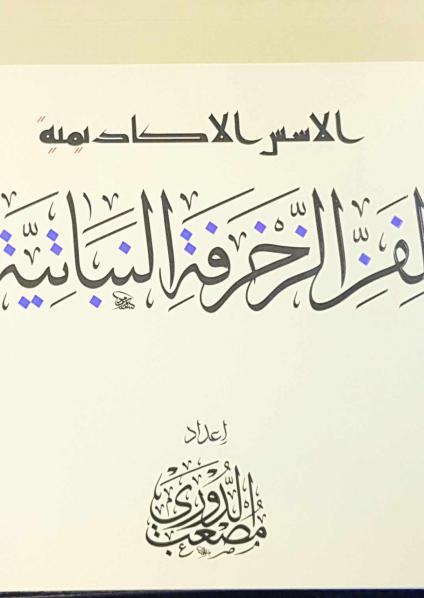 الاسس الاكاديمية
لفن الزخرفة النباتية
إعداد
مصعب الدوري